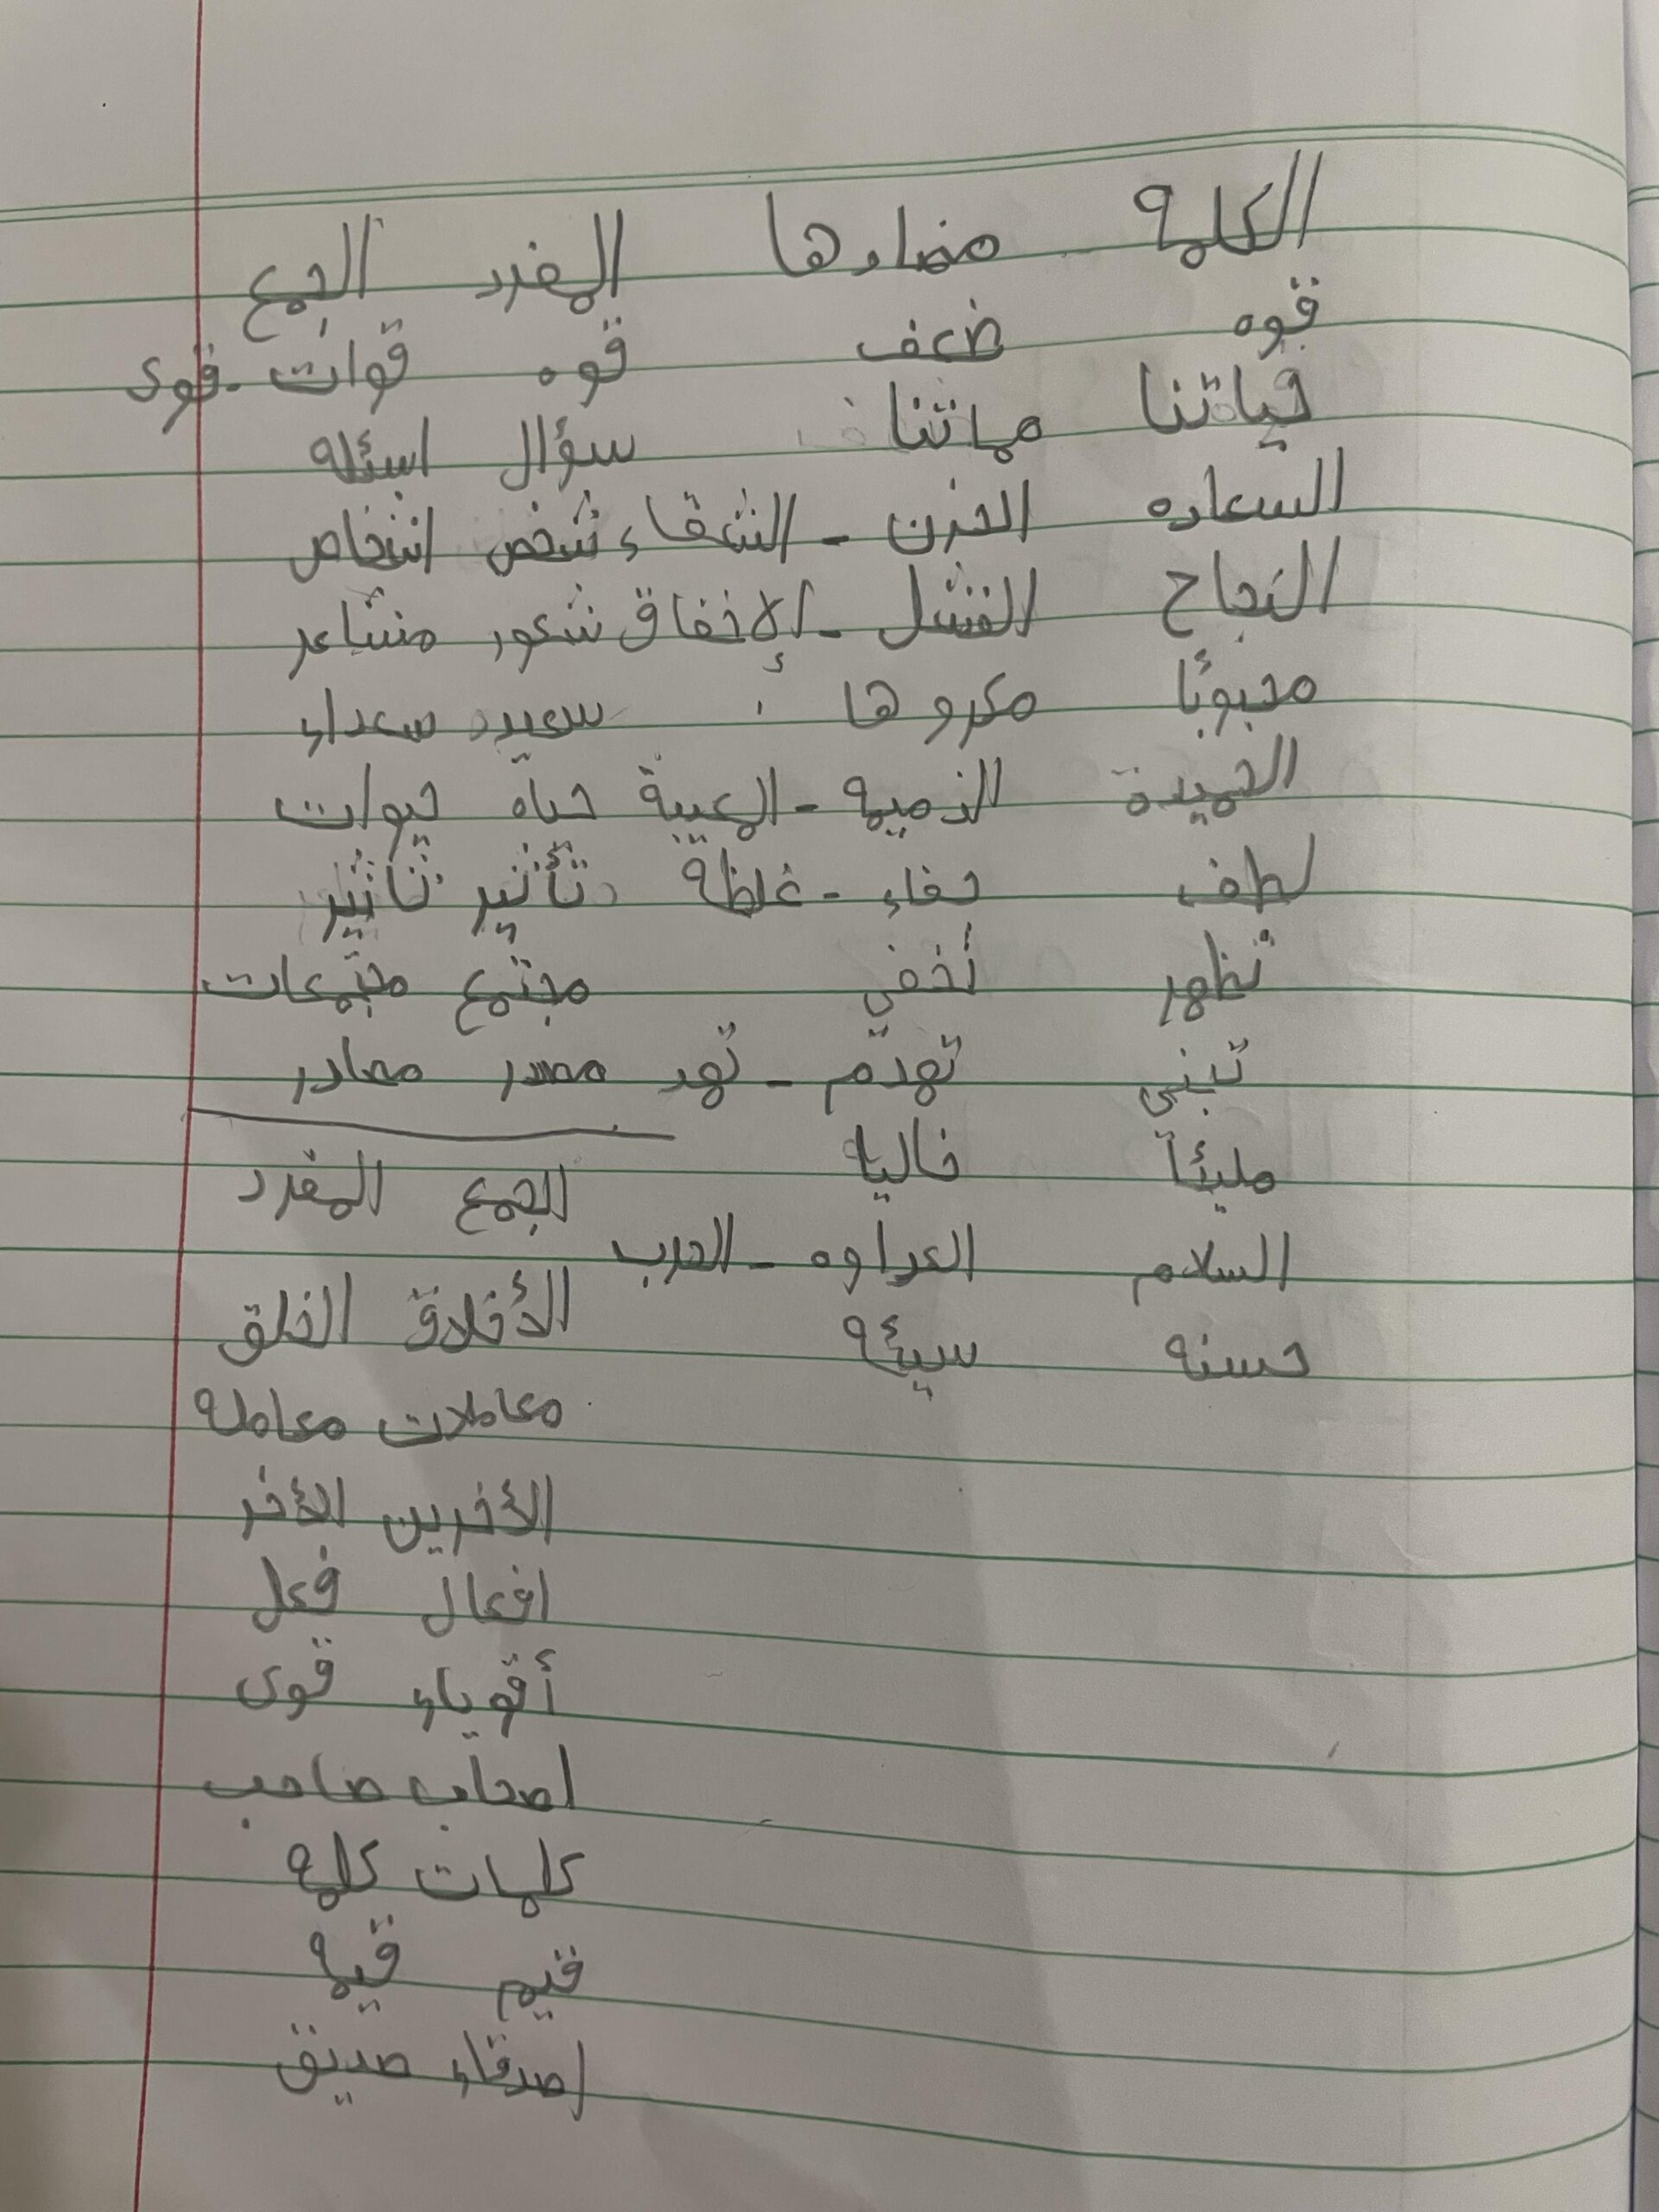 الكلمة مضادها المفرد الجمع
قوه ضعف قوه قوات - قوى
حياتنا مماتنا سؤال اسئله
السعاده الحزن - الشقاء شخص اشخاص
النجاح الفشل - الإخفاق شعور مشاعر
محبوبًا مكروها سعيد سعداء
الحميدة الذميمه - المعيبة حياه حيوات
لطف جفاء - غلظة تأثير تأثير
تظهر تخفي مجتمع مجتمعات
تبنى تهدم - تهد مصدر مصادر
مليئًا خاليا
الجمع المفرد
السلام العداوه - الحرب
الأخلاق الخلق
حسنه سيئه
معاملات معاملة
الأخرين الأخر
افعال فعل
أقوياء قوى
اصحاب صاحب
كلمات كلمة
قيم قيمة
اصدقاء صديق